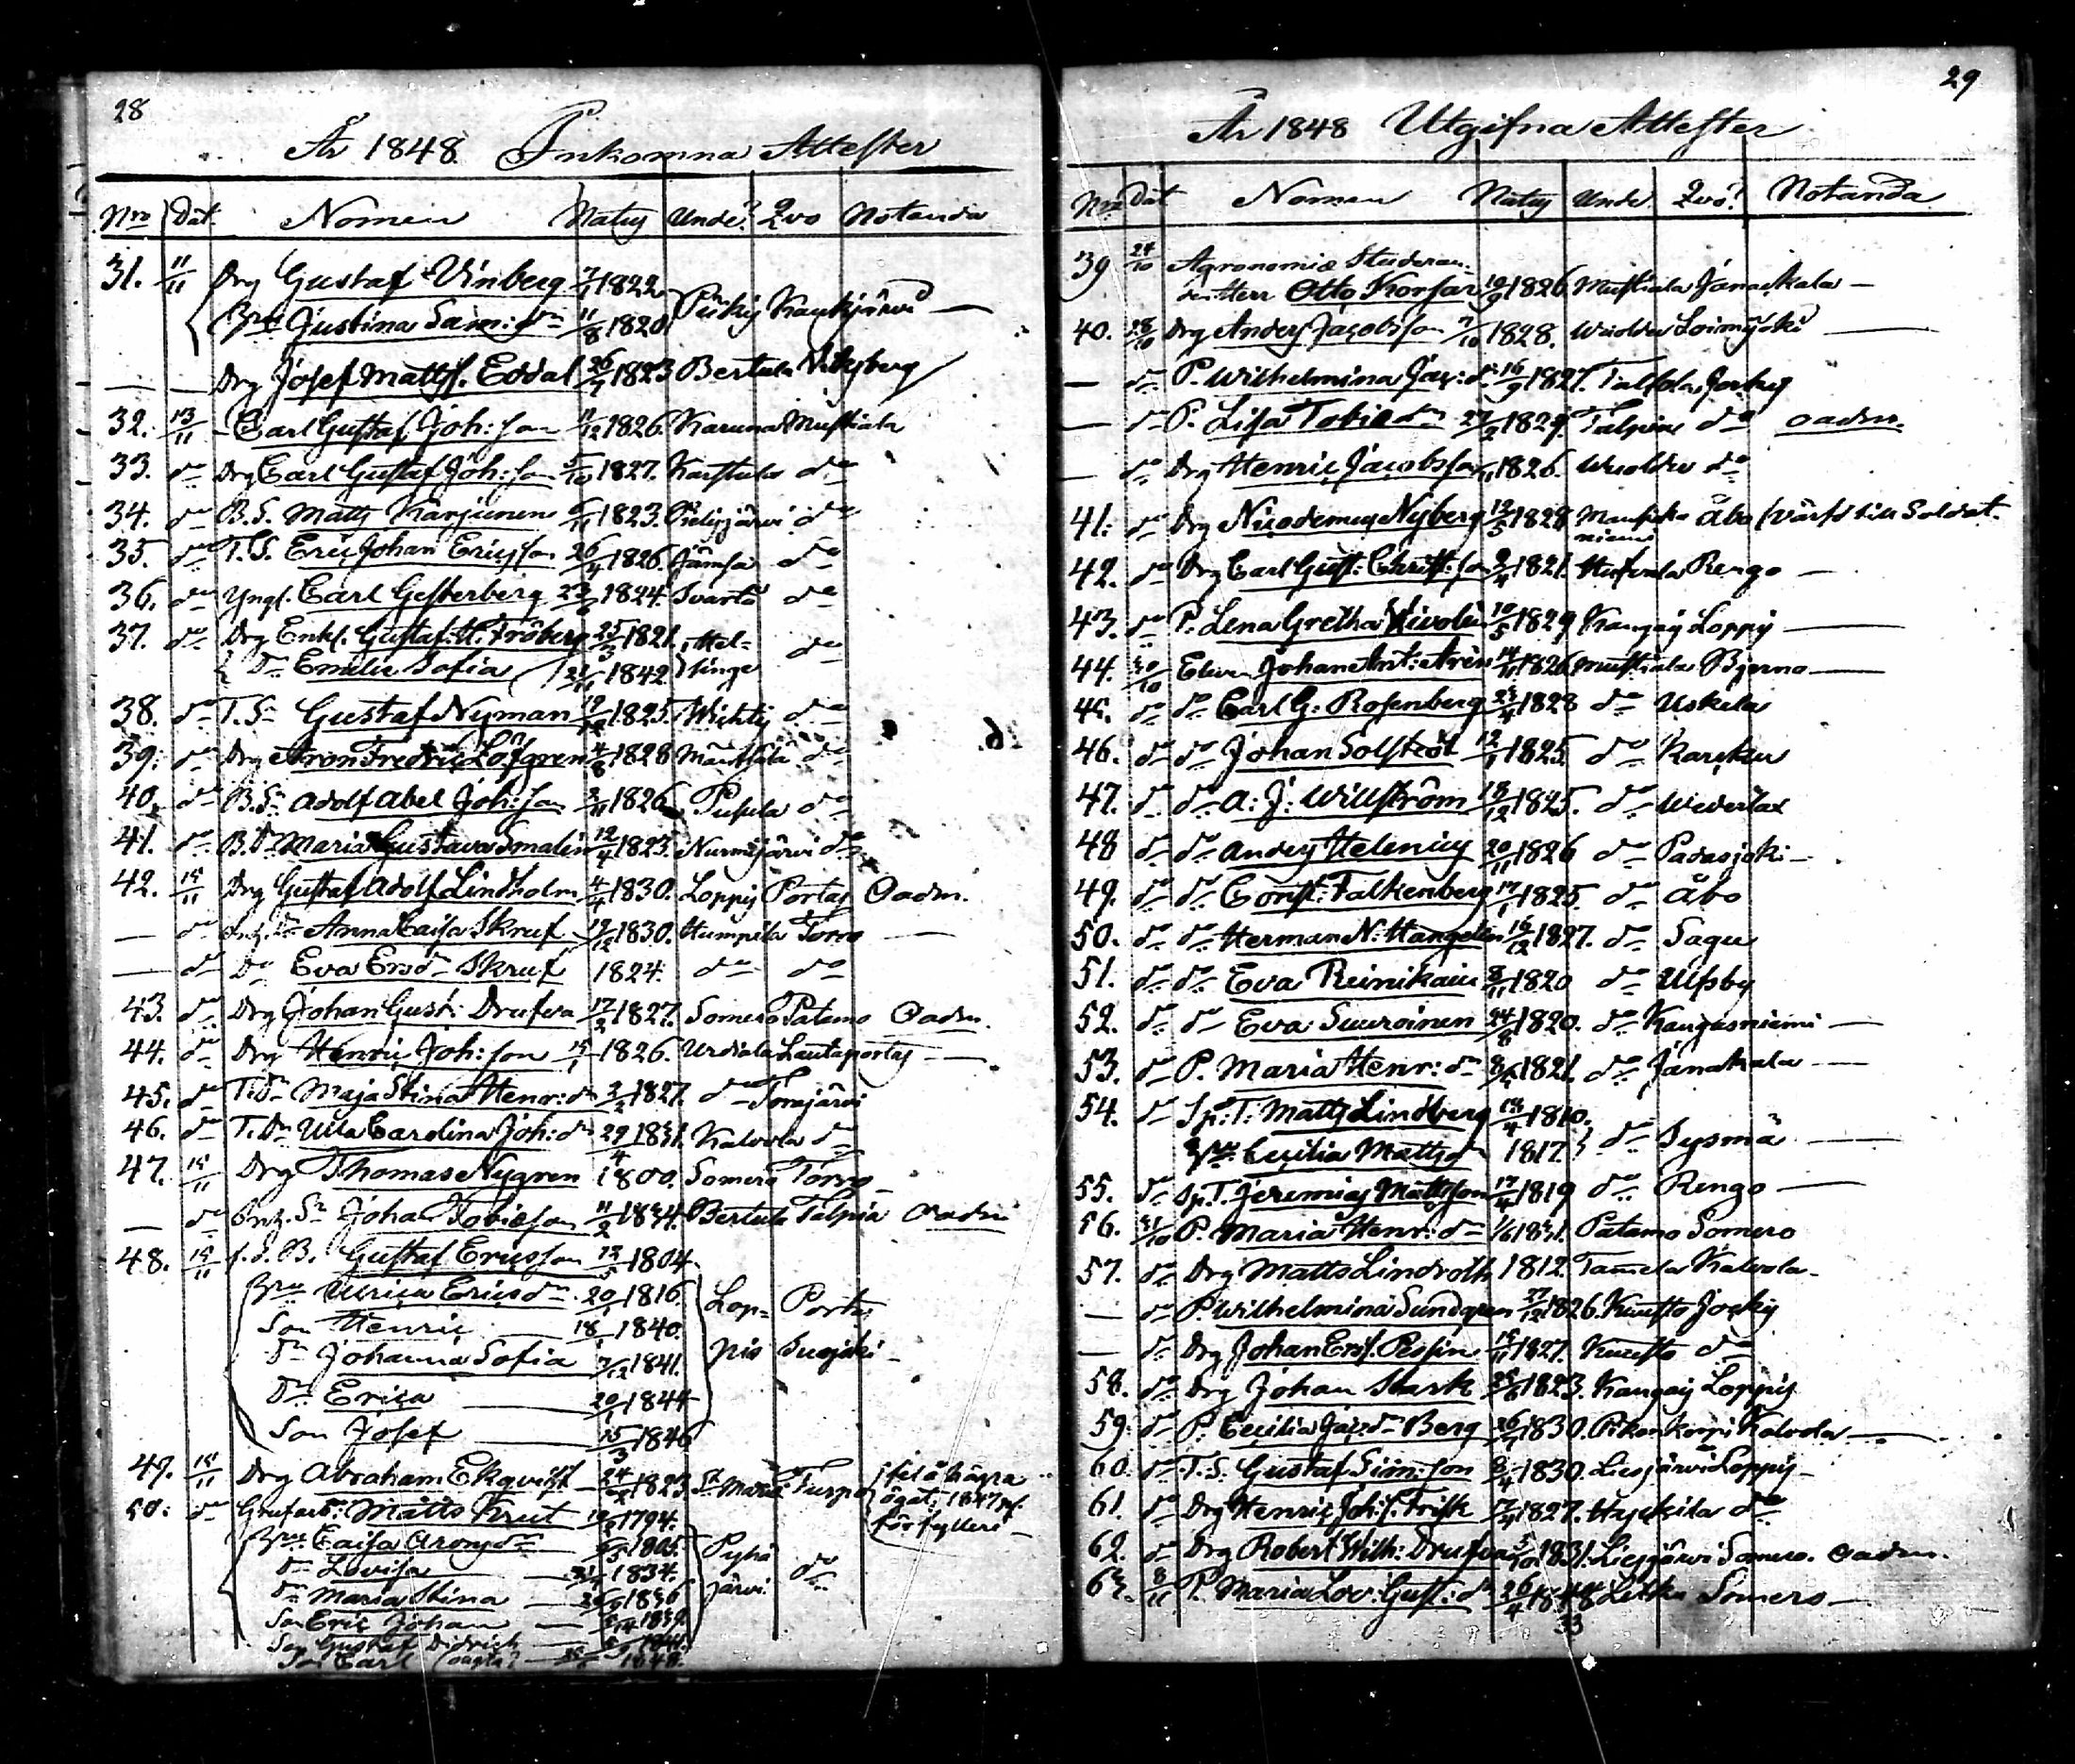 28
År 1848 Inkomna Attester
Nro Dat. Nomen Natus Unde? Qvo Notanda
31. 11/11 Drg Gustaf Vinberg 1822
Justina Sam:dr 11/8 1820 Kaukjärvi —
— — Drg Josef Matts. Eddal 1823 Bertula
32. 13/11 Carl Gustaf Joh:son 1826. Karuna Mustiala
33. do Drg Carl Gustaf Joh:son 1827. Karstula do
34. do B.S. Matts Karjunen 1823. do
35. do T.S. Eric Johan Ericsson 26/4 1826. Jämsä do
36. do Yngl. Carl Gesterberg 1824. Svartå do
37. do Drg Enkl. Gustaf. H. Fröberg 25/3 1821. Hel-
Dr Emilie Sofia 1842 singe do
38. do T. Sn Gustaf Nyman 1825. Wichtis do
39. do Drg Aron Fredric Löfgren 4/8 1828 Mäntsälä do
40. do B. Sn Adolf Abel Joh:son 1826 Pusula do
41. do B. Dr Maria Gustava Smalin 12/4 1825. Nurmijärvi do
42. 15/11 Drg Gustaf Adolf Lindholm 4/4 1830. Loppis Portas Oadm.
— do Anna Caisa Skruf 1830. Humpila Torro —
— do Do Eva Ersdr Skruf 1824. do do
43. do Drg Johan Gust. Drufva 17/2 1827. Somero Patamo Oadm.
44. do Drg Henric Joh:son 1826. Urdiala Lautaportas —
45. do T. Dr Maja Stina Henr:dr 3/2 1827. do Torajärvi
46. do T. Dr Ulla Carolina Joh:dr 29/4 1831. Kalvola do
47. 15/11 Drg Thomas Nygren 1800. Somero Torro —
— do Johan Tobiasson 11/2 1834. Bertula Talpia Oadm
48. 15/11 Gustaf Ericsson 1804
Ulrica Ericsdr 20/1 1816 Lop- Portas
Son Henric 1840 pis Susijoki —
Dr Johanna Sofia 7/12 1841.
Dr Erica — 20/1 1844
Son Josef — 15/3 1846
49. 15/11 Drg Abraham Ekqvist 1823 St Marie Turpo fel å högra
ögat. 1847 pl.
för fylleri —
50. do Matts Krut 1794.
Caisa Aronsdr 1805. Pyhä
Dr Lovisa — 1834. järvi. do
Dr Maria Stina — 1836
Son Eric Johan — 1839
Son Gustaf Didrich — 1841.
Son Carl — 1848.
29
År 1848 Utgifna Attester
Nro Dat Nomen Natus Unde Qvo? Notanda
39 24/10 Agronomie Studeran-
den Herr Otto Korsar 1826 Mustiala Janakkala —
40. 28/10 Drg Anders Jacobsson 7/10 1828. Loimijoki —
— do P. Wilhelmina Jac:dr 16/9 1827. Jockis
— do P. Lisa Tobiedr 27/2 1829. do oadm.
— do Drg Henric Jacobsson 1826. do
41. do Drg Nicodemus Nyberg 12/5 1828 Åbo Värfd till Soldat.
42. do Drg Carl Gust: Christ:son 1821. Rengo —
43. do P. Lena Gretha 10/5 1829 Kangais Loppis —
44. 30/10 Elev. Johan Ant: Arén 1826 Mustiala Bjerno —
45. do do Carl G. Rosenberg 1828 do Uskela
46. do do Johan Solstedt 12/1 1825. do Karkku
47. do do A: J: Willström 18/12 1825. do
48 do do Anders Helenius 20/11 1826 do Padasjoki —
49. do do Const: Falkenberg 1825. do Åbo
50. do do Herman N: Hangelin 16/12 1827. do Sagu
51. do do Eva Reinikain 8/11 1820 do Ulfsby
52. do do Eva Suuroinen 24/8 1820. do Kangasniemi —
53. do P. Maria Henr: dr 1821. do Janakkala —
54. do Sp: T: Matts Lindberg 1810.
Cecilia Mattsdr 1817. do Sysmä —
55. do Sp. T. Jeremias Mattsson 1819 do Rengo —
56. 31/10 P. Maria Henr: dr 1/6 1831. Patamo Somero
57. do Drg Matts Lindroth 1812. Tamela Kalvola —
— do P. Wilhelmina Sundgren 27/12 1826. Kuusto Jockis
— do Drg Johan Ersf. Pessin 1827. Kuusto do
58. do Drg Johan Stark 1823. Kangais Loppis
59. do P. Cecilia Jacdr Berg 26/7 1830. Pikonkorpi Kalvola —
60. do T. S. Gustaf Sim:son 1830. Liesjärvi Loppis —
61. do Drg Henric Joh.f. Frisk 17/4 1827. do
62. do Drg Robert Wilh: Drufva 1831. Liesjärvi Somero. oadm.
63. 8/11 P. Maria Lov. Gust:dr 26/4 1848 Somero —
33